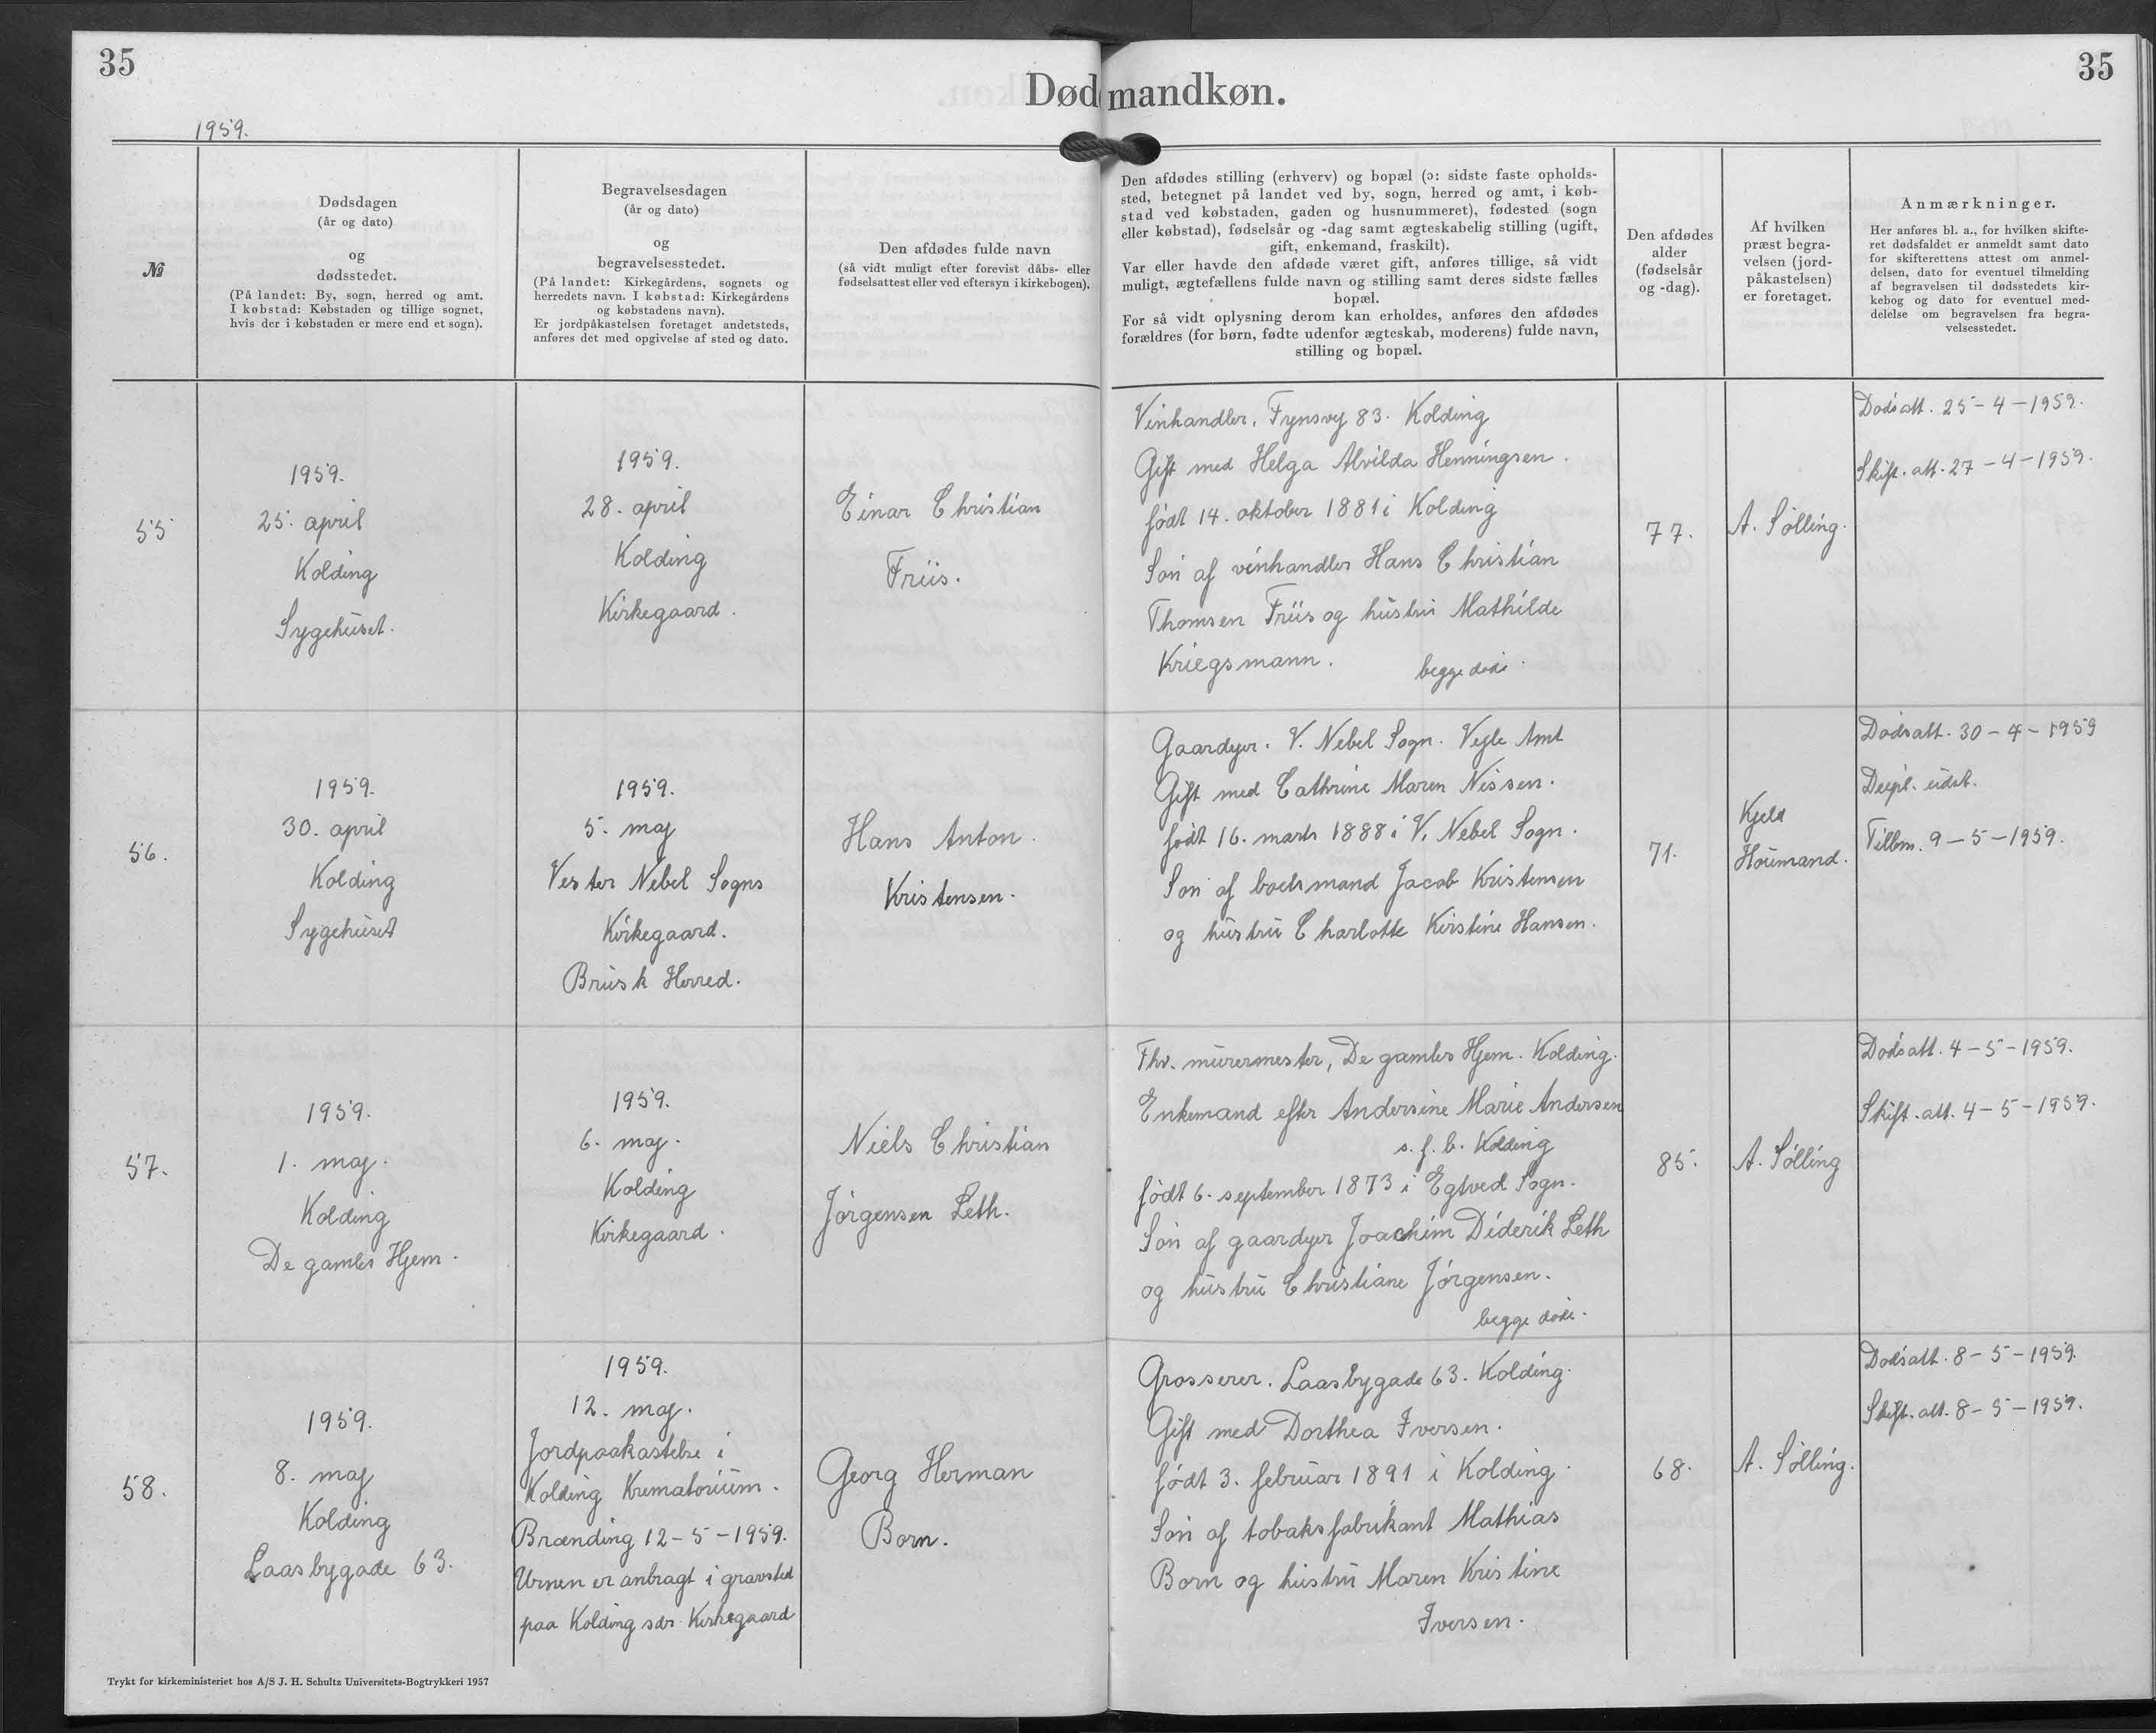 35
35
Død mandkøn.
1959.
№
Dødsdagen
(år og dato)
og
dødsstedet.
(På landet: By, sogn, herred og amt.
I købstad: Købstaden og tillige sognet,
hvis der i købstaden er mere end et sogn).
Begravelsesdagen
(år og dato)
og
begravelsesstedet.
(På landet: Kirkegårdens, sognets og
herredets navn. I købstad: Kirkegårdens
og købstadens navn).
Er jordpåkastelsen foretaget andetsteds,
anføres det med opgivelse af sted og dato.
Den afdødes fulde navn
(så vidt muligt efter forevist dåbs- eller
fødselsattest eller ved eftersyn i kirkebogen).
Den afdødes stilling (erhverv) og bopæl (ɔ: sidste faste opholds-
sted, betegnet på landet ved by, sogn, herred og amt, i køb-
stad ved købstaden, gaden og husnummeret), fødested (sogn
eller købstad), fødselsår og -dag samt ægteskabelig stilling (ugift,
gift, enkemand, fraskilt).
Var eller havde den afdøde været gift, anføres tillige, så vidt
muligt, ægtefællens fulde navn og stilling samt deres sidste fælles
bopæl.
For så vidt oplysning derom kan erholdes, anføres den afdødes
forældres (for børn, fødte udenfor ægteskab, moderens) fulde navn,
stilling og bopæl.
Den afdødes
alder
(fødselsår
og -dag).
Af hvilken
præst begra-
velsen (jord-
påkastelsen)
er foretaget.
Anmærkninger.
Her anføres bl. a., for hvilken skifte-
ret dødsfaldet er anmeldt samt dato
for skifterettens attest om anmel-
delsen, dato for eventuel tilmelding
af begravelsen til dødsstedets kir-
kebog og dato for eventuel med-
delelse om begravelsen fra begra-
velsesstedet.
55
1959.
25. april
Kolding
Sygehuset.
1959.
28. april
Kolding
Kirkegaard.
Einar Christian
Friis.
Vinhandler. Fynsvej 83. Kolding
Gift med Helga Alvilda Henningsen.
født 14. oktober 1881 i Kolding
Søn af vinhandler Hans Christian
Thomsen Friis og hustru Mathilde
Kriegsmann.
begge døde.
77.
A. Sølling.
Dødsatt. 25-4-1959.
Skift. att. 27-4-1959.
56.
1959.
30. april
Kolding
Sygehuset
1959.
5. maj
Vester Nebel Sogns
Kirkegaard.
Brusk Herred.
Hans Anton
Kristensen.
Gaardejer. V. Nebel Sogn. Vejle Amt
Gift med Cathrine Maren Nissen.
født 16. marts 1888 i V. Nebel Sogn.
Søn af boelsmand Jacob Kristensen
og hustru Charlotte Kirstine Hansen.
71.
Kjeld
Houmand.
Dødsatt. 30-4-1959
Dupl. udst.
Tillm. 9-5-1959.
57.
1959.
1. maj.
Kolding
De gamles Hjem.
1959.
6. maj.
Kolding
Kirkegaard.
Niels Christian
Jørgensen Leth.
Fhv. murermester, De gamles Hjem. Kolding.
Enkemand efter Andersine Marie Andersen
s. f. b. Kolding
født 6. september 1873 i Egtved Sogn.
Søn af gaardejer Joachim Diderik Leth
og hustru Christiane Jørgensen.
begge døde.
85.
A. Sølling
Dødsatt. 4-5-1959.
Skift. att. 4-5-1959.
58.
1959.
8. maj
Kolding
Laasbygade 63.
1959.
12. maj.
Jordpaakastelse i
Kolding Krematorium.
Brænding 12-5-1959.
Urnen er anbragt i gravsted
paa Kolding sdr. Kirkegaard
Georg Herman
Born.
Grosserer. Laasbygade 63. Kolding.
Gift med Dorthea Iversen.
født 3. februar 1891 i Kolding.
Søn af tobaksfabrikant Mathias
Born og hustru Maren Kristine
Iversen.
68.
A. Sølling.
Dødsatt. 8-5-1959.
Skift. att. 8-5-1959.
Trykt for kirkeministeriet hos A/S J. H. Schultz Universitets-Bogtrykkeri 1957